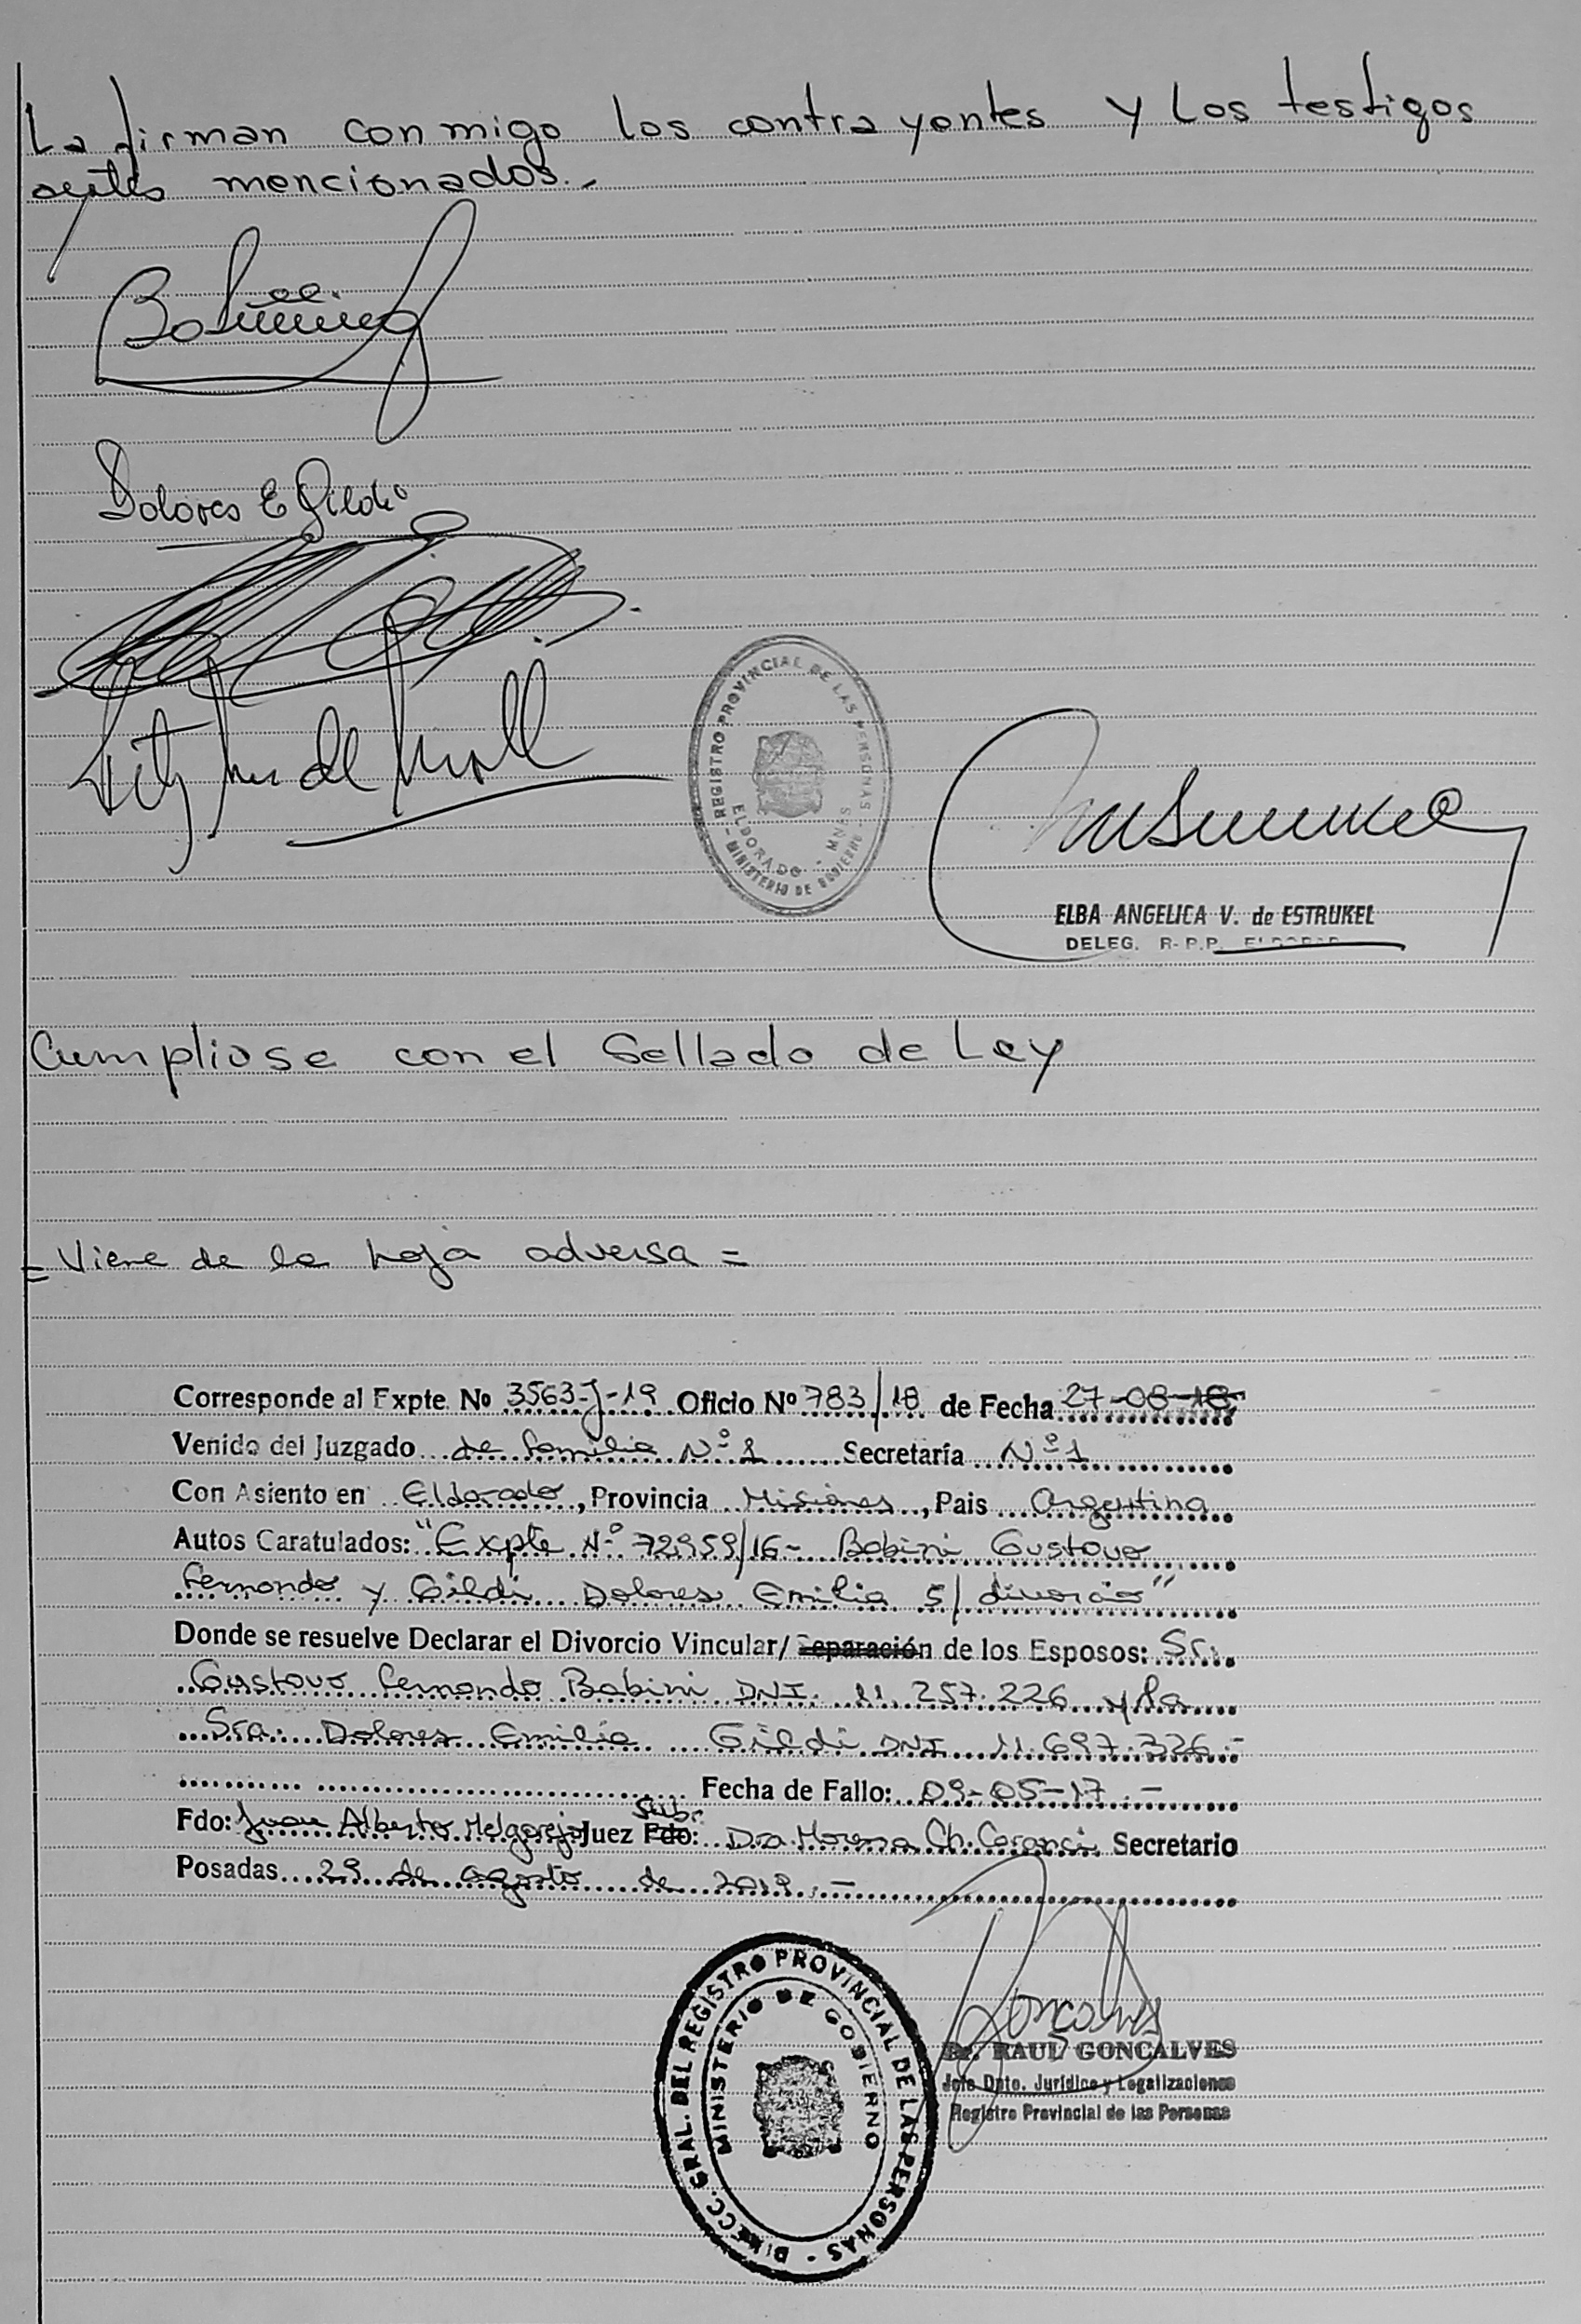 La firman conmigo los contrayentes y los testigos
antes mencionados.-
Dolores E Gildi
REGISTRO PROVINCIAL DE LAS PERSONAS
- MINISTERIO DE GOBIERNO -
ELDORADO - MNES
ELBA ANGELICA V. de ESTRUKEL
DELEG. R.P.P.
Cumpliose con el Sellado de Ley
= Viene de la hoja adversa =
Corresponde al Expte. Nº 3563-J-19 Oficio Nº 783/18 de Fecha 27-08-18
Venido del Juzgado de familia Nº 1 Secretaría Nº 1
Con Asiento en Eldorado, Provincia Misiones, Pais Argentina
Autos Caratulados: "Expte Nº 72959/16- Babini Gustavo
Fernando y Gildi Dolores Emilia s/ divorcio"
Donde se resuelve Declarar el Divorcio Vincular/ Separación de los Esposos: Sr.
Gustavo Fernando Babini DNI. 11.257.226 y la
Sra. Dolores Emilia Gildi DNI 11.697.326.-
Fecha de Fallo: 09-05-17.-
Fdo: Juan Alberto Melgarejo Juez Sub. Fdo: Dra. Morena Ch. Secretario
Posadas 29 de agosto de 2019.-
DIRECC. GRAL. DEL REGISTRO PROVINCIAL DE LAS PERSONAS -
MINISTERIO DE GOBIERNO
Goncalves
Dr. RAUL GONCALVES
Jefe Dpto. Jurídico y Legalizaciones
Registro Provincial de las Personas